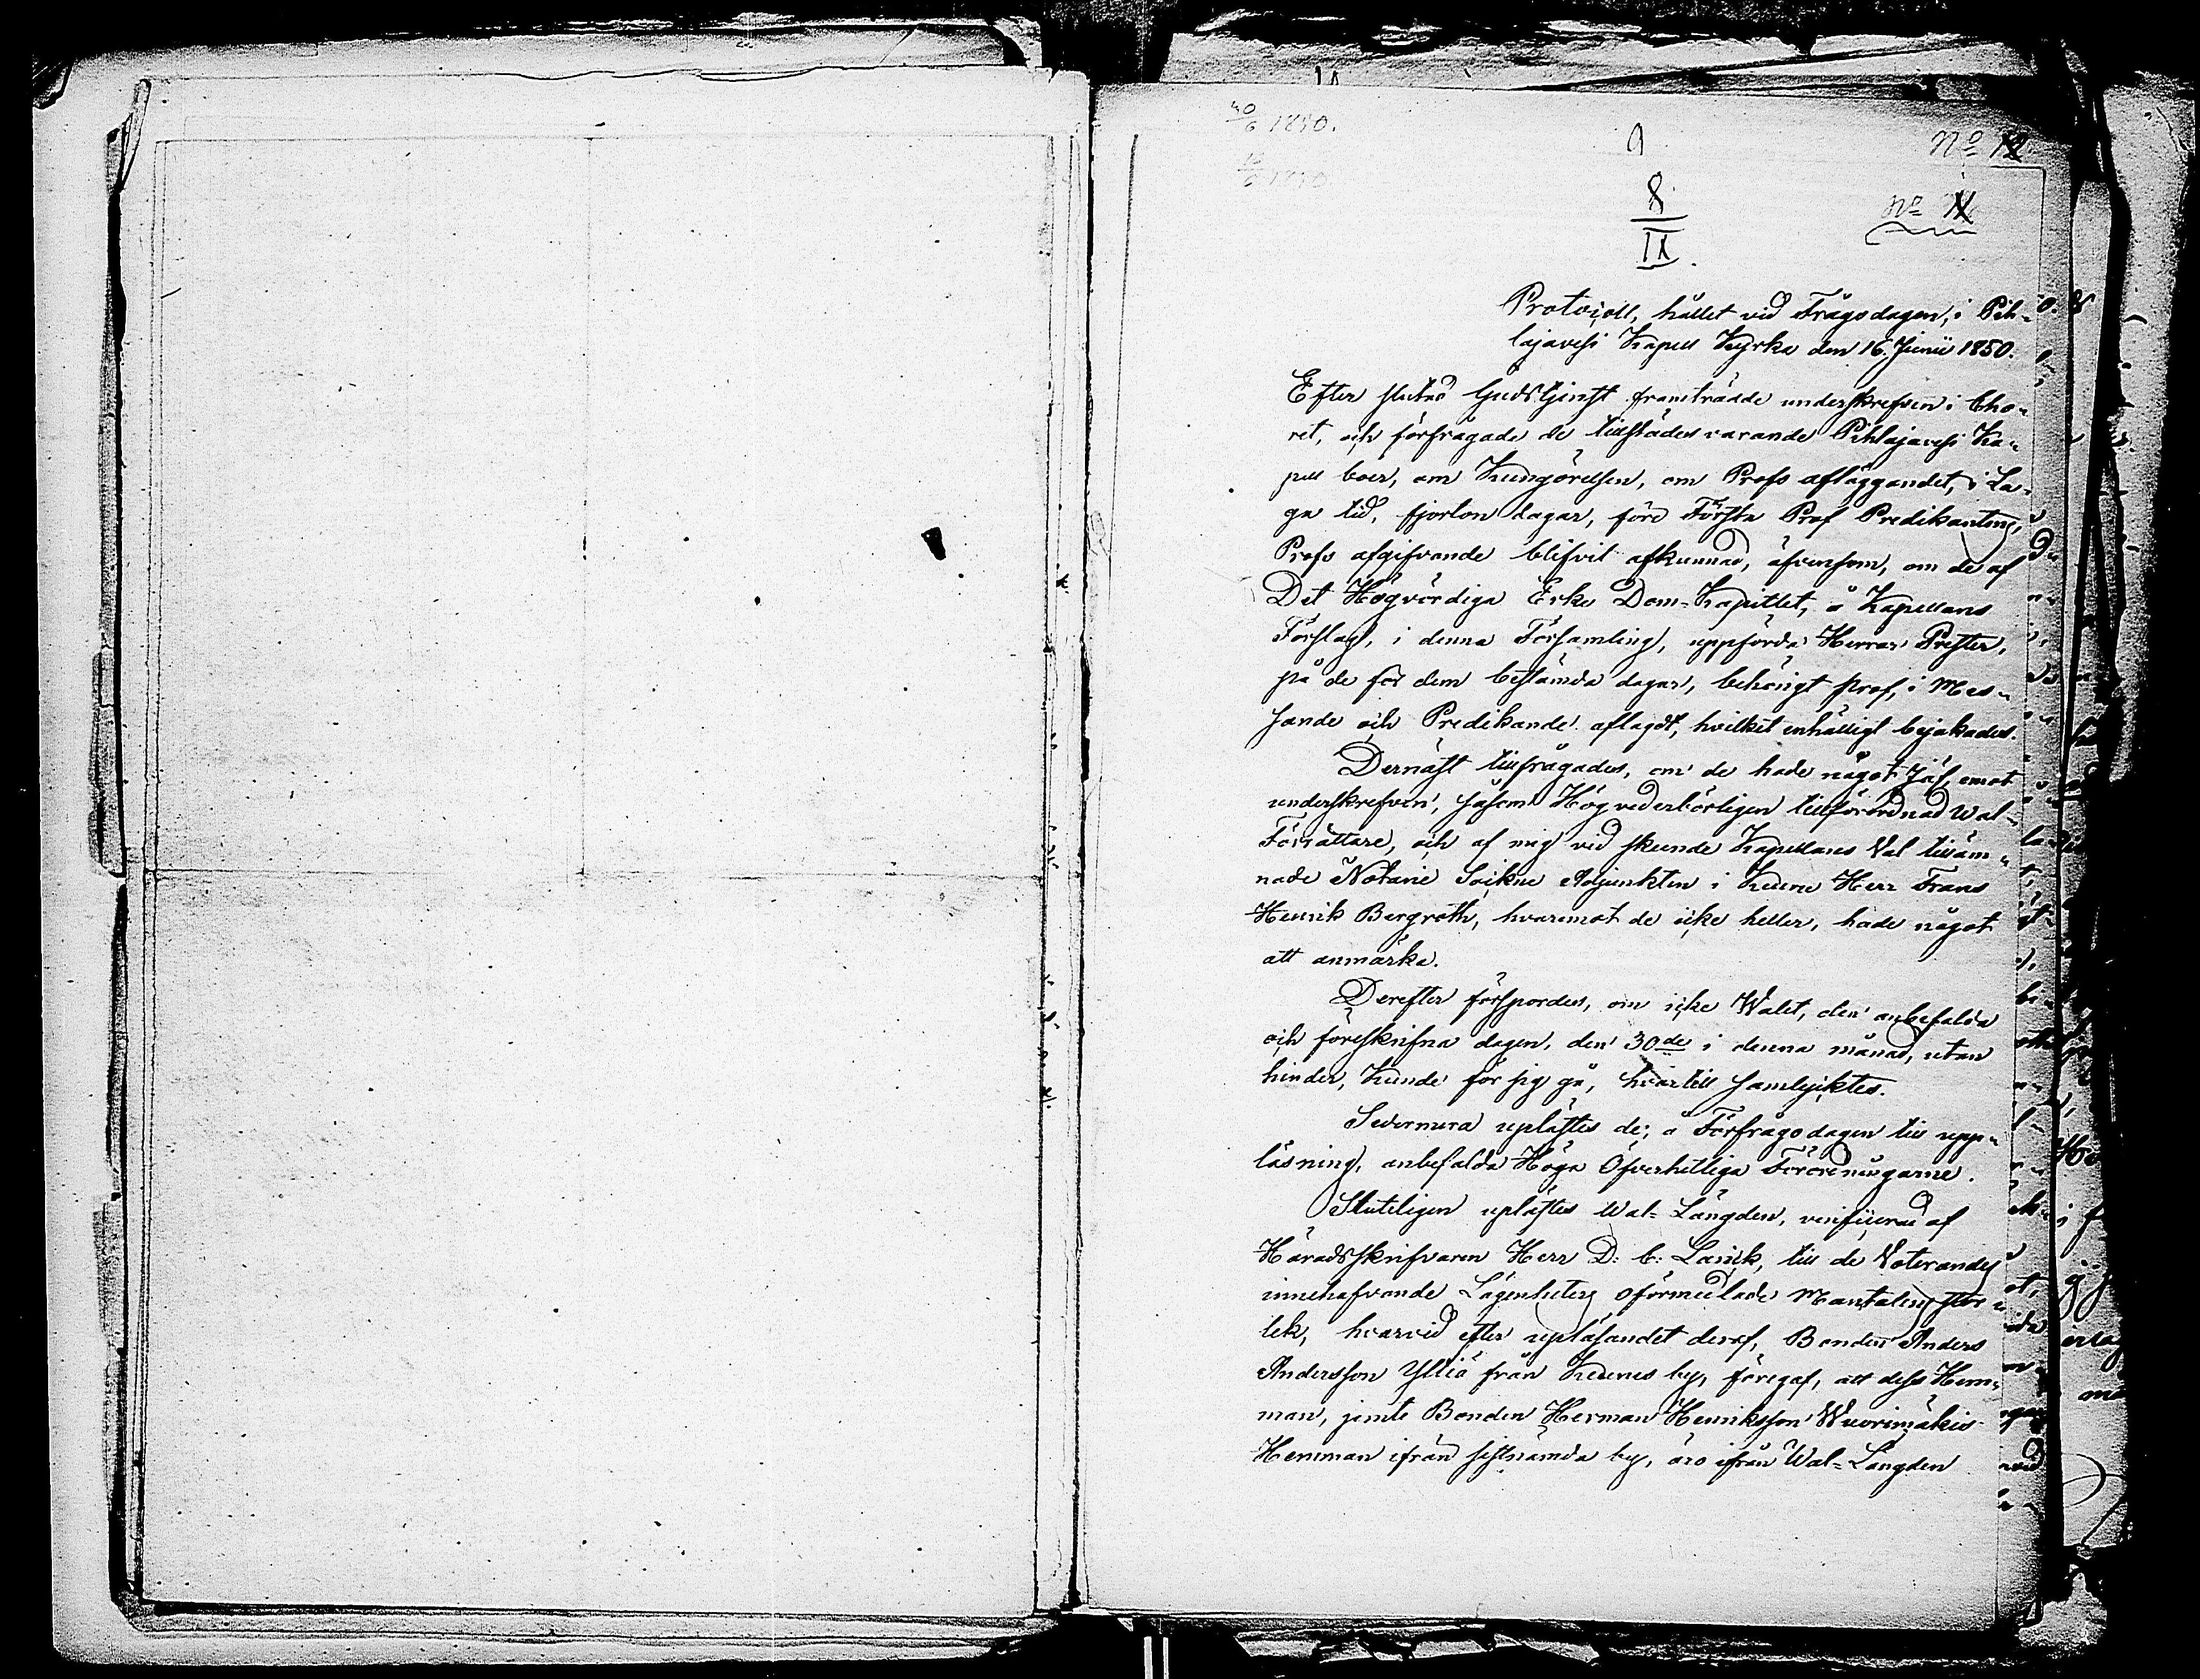 30/6 1850.
9
No 12
8
IX.
No IX
Protocoll, hållet vid Frågodagen, i Pih-
lajavesi Kapell Kyrka den 16 Junii 1850.
Efter slutad Gudstjenst framträdde underskrefven i Cho-
ret, och förfrågade de tillstädesvarande Pihlajavesi Ka-
pell boer, om Kungörelsen, om Profs afläggandet, i La-
ga tid, fjorton dagar, före Första Prof Predikantens
Profs afgifvande blifvit afkunnad, äfvensom, om de af
Det Högvördiga Erke Dom-Kapitlet, å Kapellans
Förslag, i denna Församling, uppförda Herrar Prester,
på de för dem bestämda dagar, behörigt prof, i Mes-
sande och Predikande aflagdt, hvilket enhälligt bejakades.
Dernäst tillfrågades, om de hade något Jäf, emot
underskrefven, såsom Högvederbörligen tillförordnad Wal-
Förrättare, och af mig vid skeende Kapellans Val tilläm-
nade Notarie Sockne Adjunkten i Keuru Herr Frans
Henrik Bergroth, hvaremot de icke heller, hade något
att anmärka.
Derefter förspordes, om icke Walet, den anbefalda
och föreskrifna dagen, den 30de i denna månad, utan
hinder, kunde för sig gå, hvartill samtycktes.
Sedermera uplästes de, å Förfrågodagen till upp-
läsning, anbefalda Höga Öfverhetliga Förordningarne.
Sluteligen uplästes Wal-Längden, verificerad af
Häradsskrifvaren Herr D: C: Lanck, till de Voterandes
innehafvande Lägenheters oförmedlade Mantalens stor-
lek, hvarvid efter upläsandet deraf, Bonden Anders
Andersson Ylliä från Keurus by, föregaf, att dess Hem-
man, jemte Bonden Herman Henriksson Wuorimäkis
Hemman ifrån sistnämda by, äro ifrån Wal-Längden